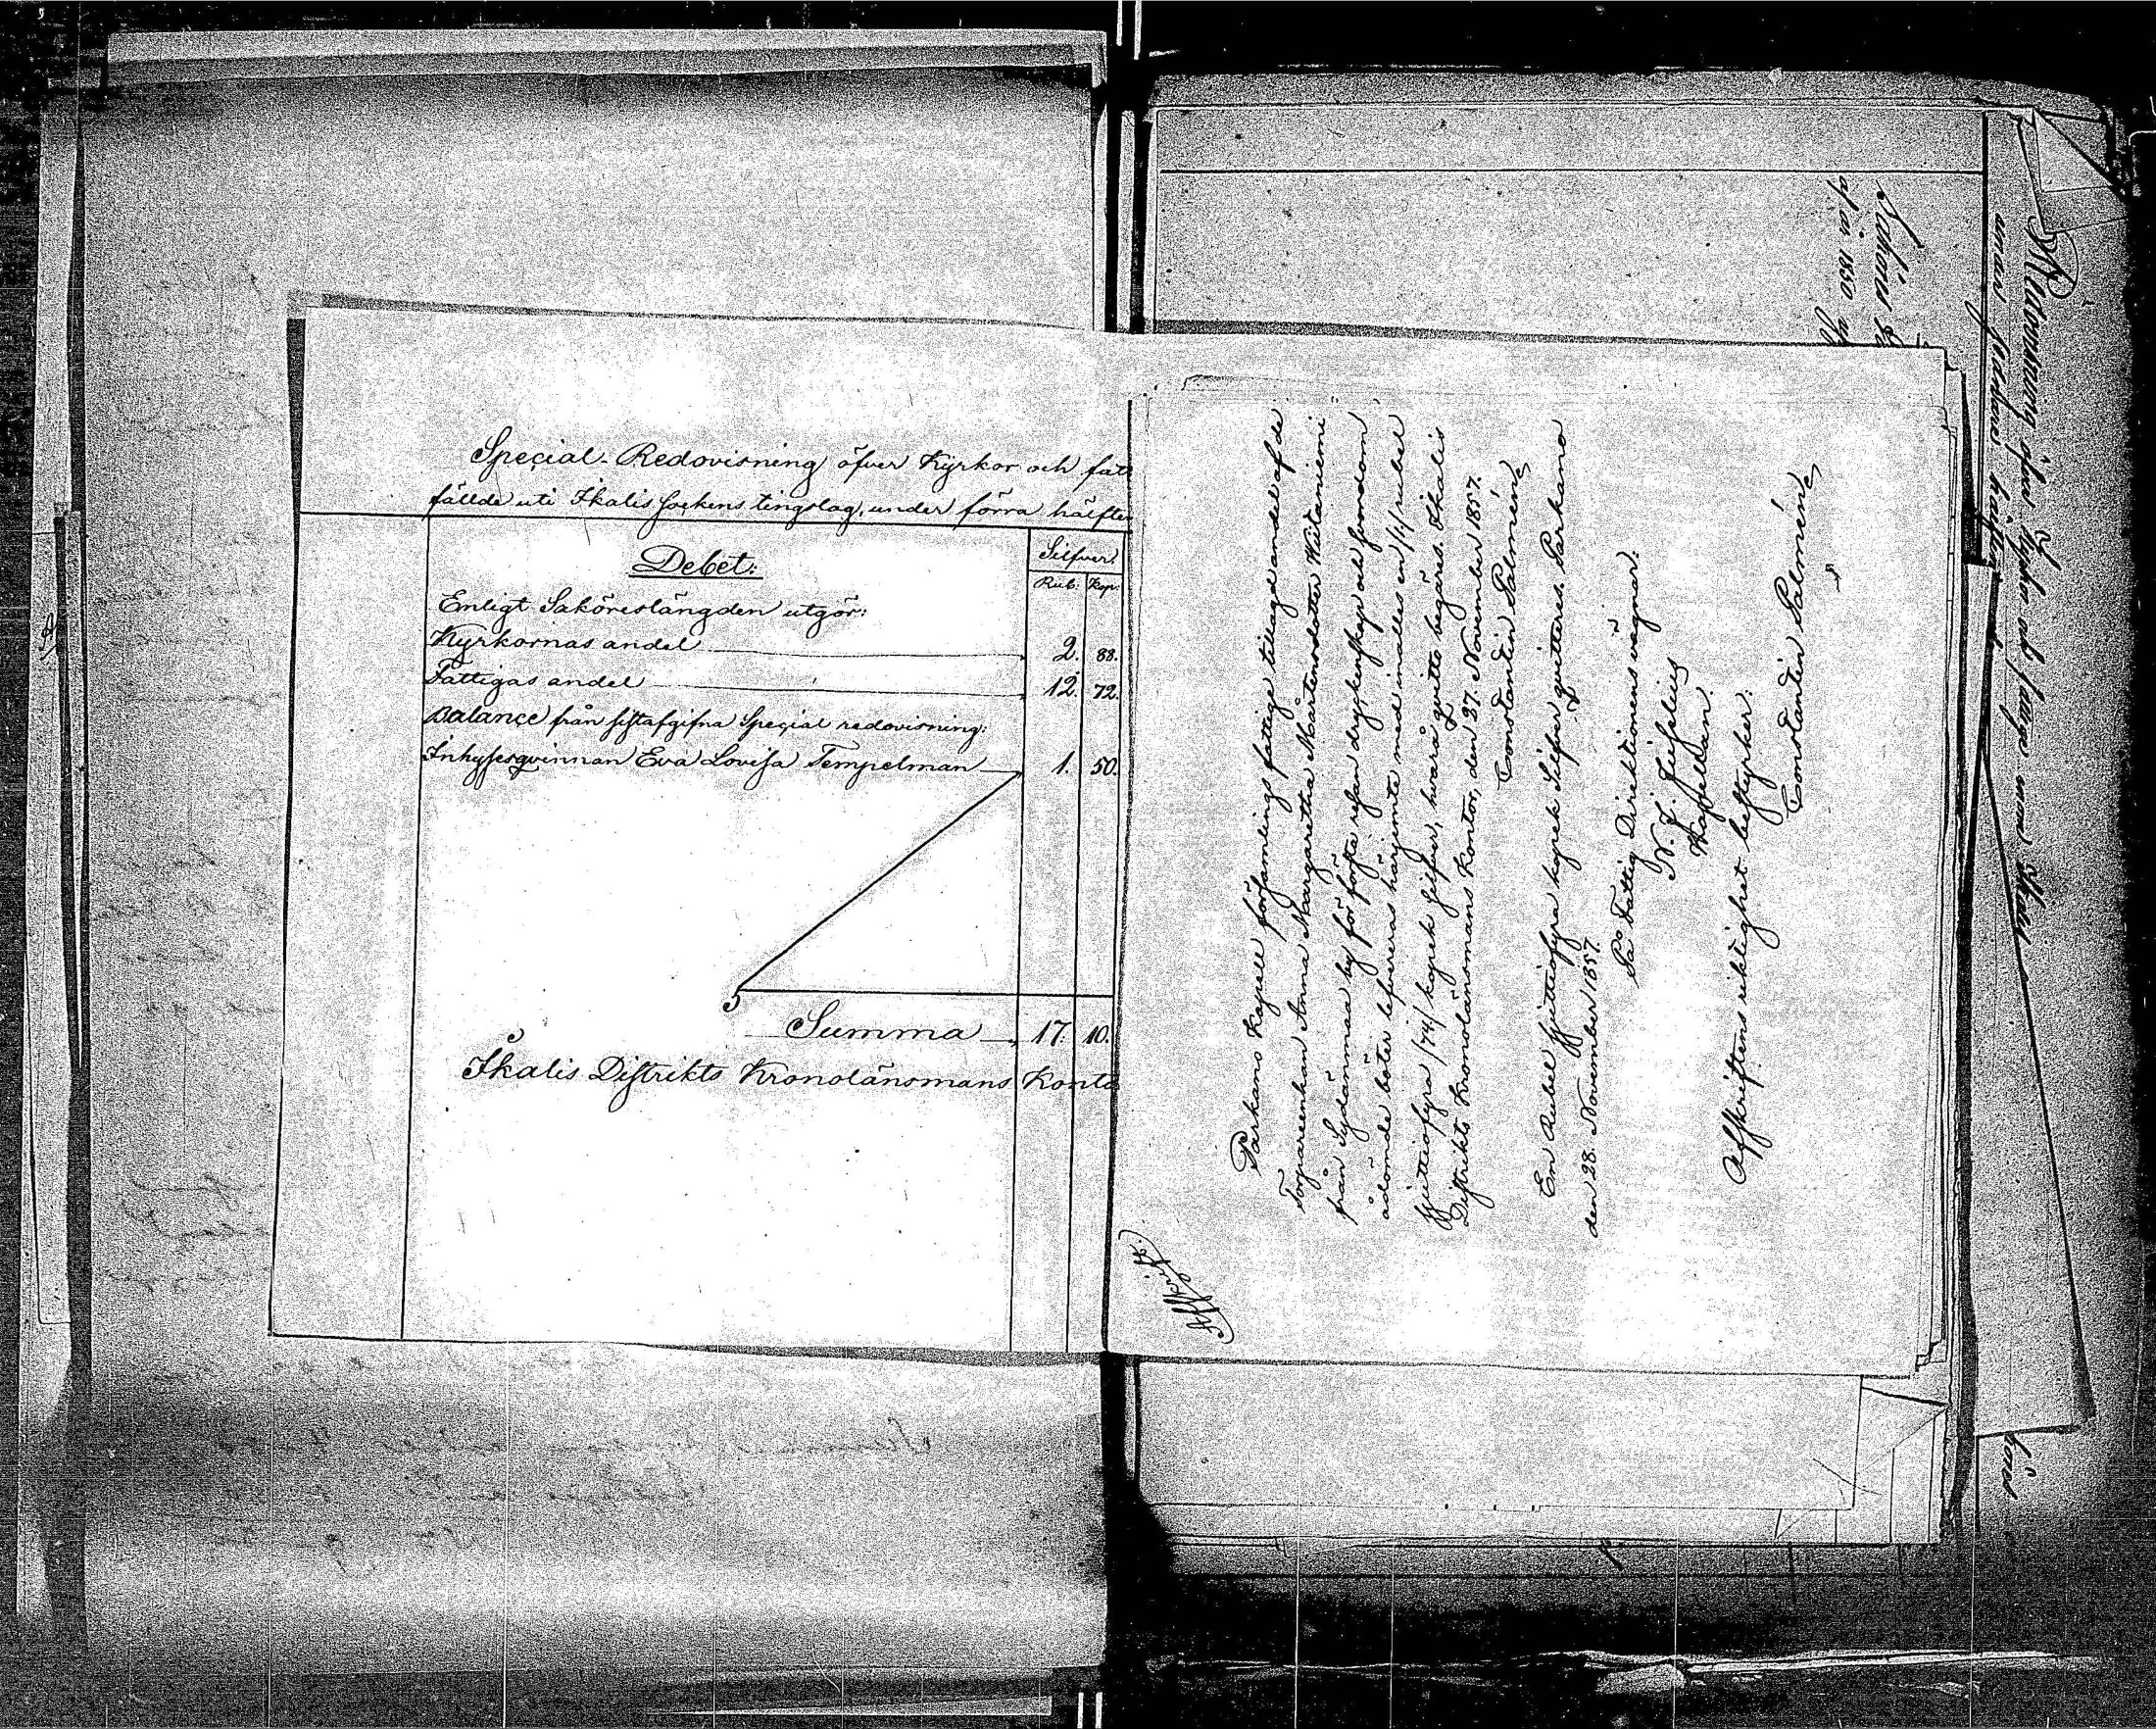 Special-Redovisning öfver Kyrkor och fat
fällde uti Ikalis Sockens tingslag, under förra hälften
Debet:
Silfver.
Rub: Kop:
Enligt Saköreslängden utgör:
Kyrkornas andel 2. 88.
Fattigas andel 12. 72.
Balance från sistafgifna Special redovisning:
Inhysesqvinnan Eva Lovisa Tempelman 1. 50.
Summa 17. 10.
Ikalis Distrikts Kronolänsmans Konto
Parkano Kapell församlings fattige tillagd andel af de
Torpareenkan Anna Margaretha Mårtensdotter Wiitaniemi
från Sydänmaa by för första resan dryckenskap och svordom
ådömde böter lefvereras härjemte med inalles en /1/ rubel
sjuttiofyra /74/ kopek silfver, hvarå qvitto begäres. Ikalis
Distrikts Kronolänsmans Kontor, den 27. November 1857.
Constantin Palmén
En Rubel sjuttiofyra kopek Silfver qvitteras. Parkano
den 28. November 1857.
På Fattig Direktionens vägnar:
N. J.
Kapellan.
Afskriftens riktighet bestyrker:
Constantin Palmén
öfver Kyrko och fattige
af år 1850